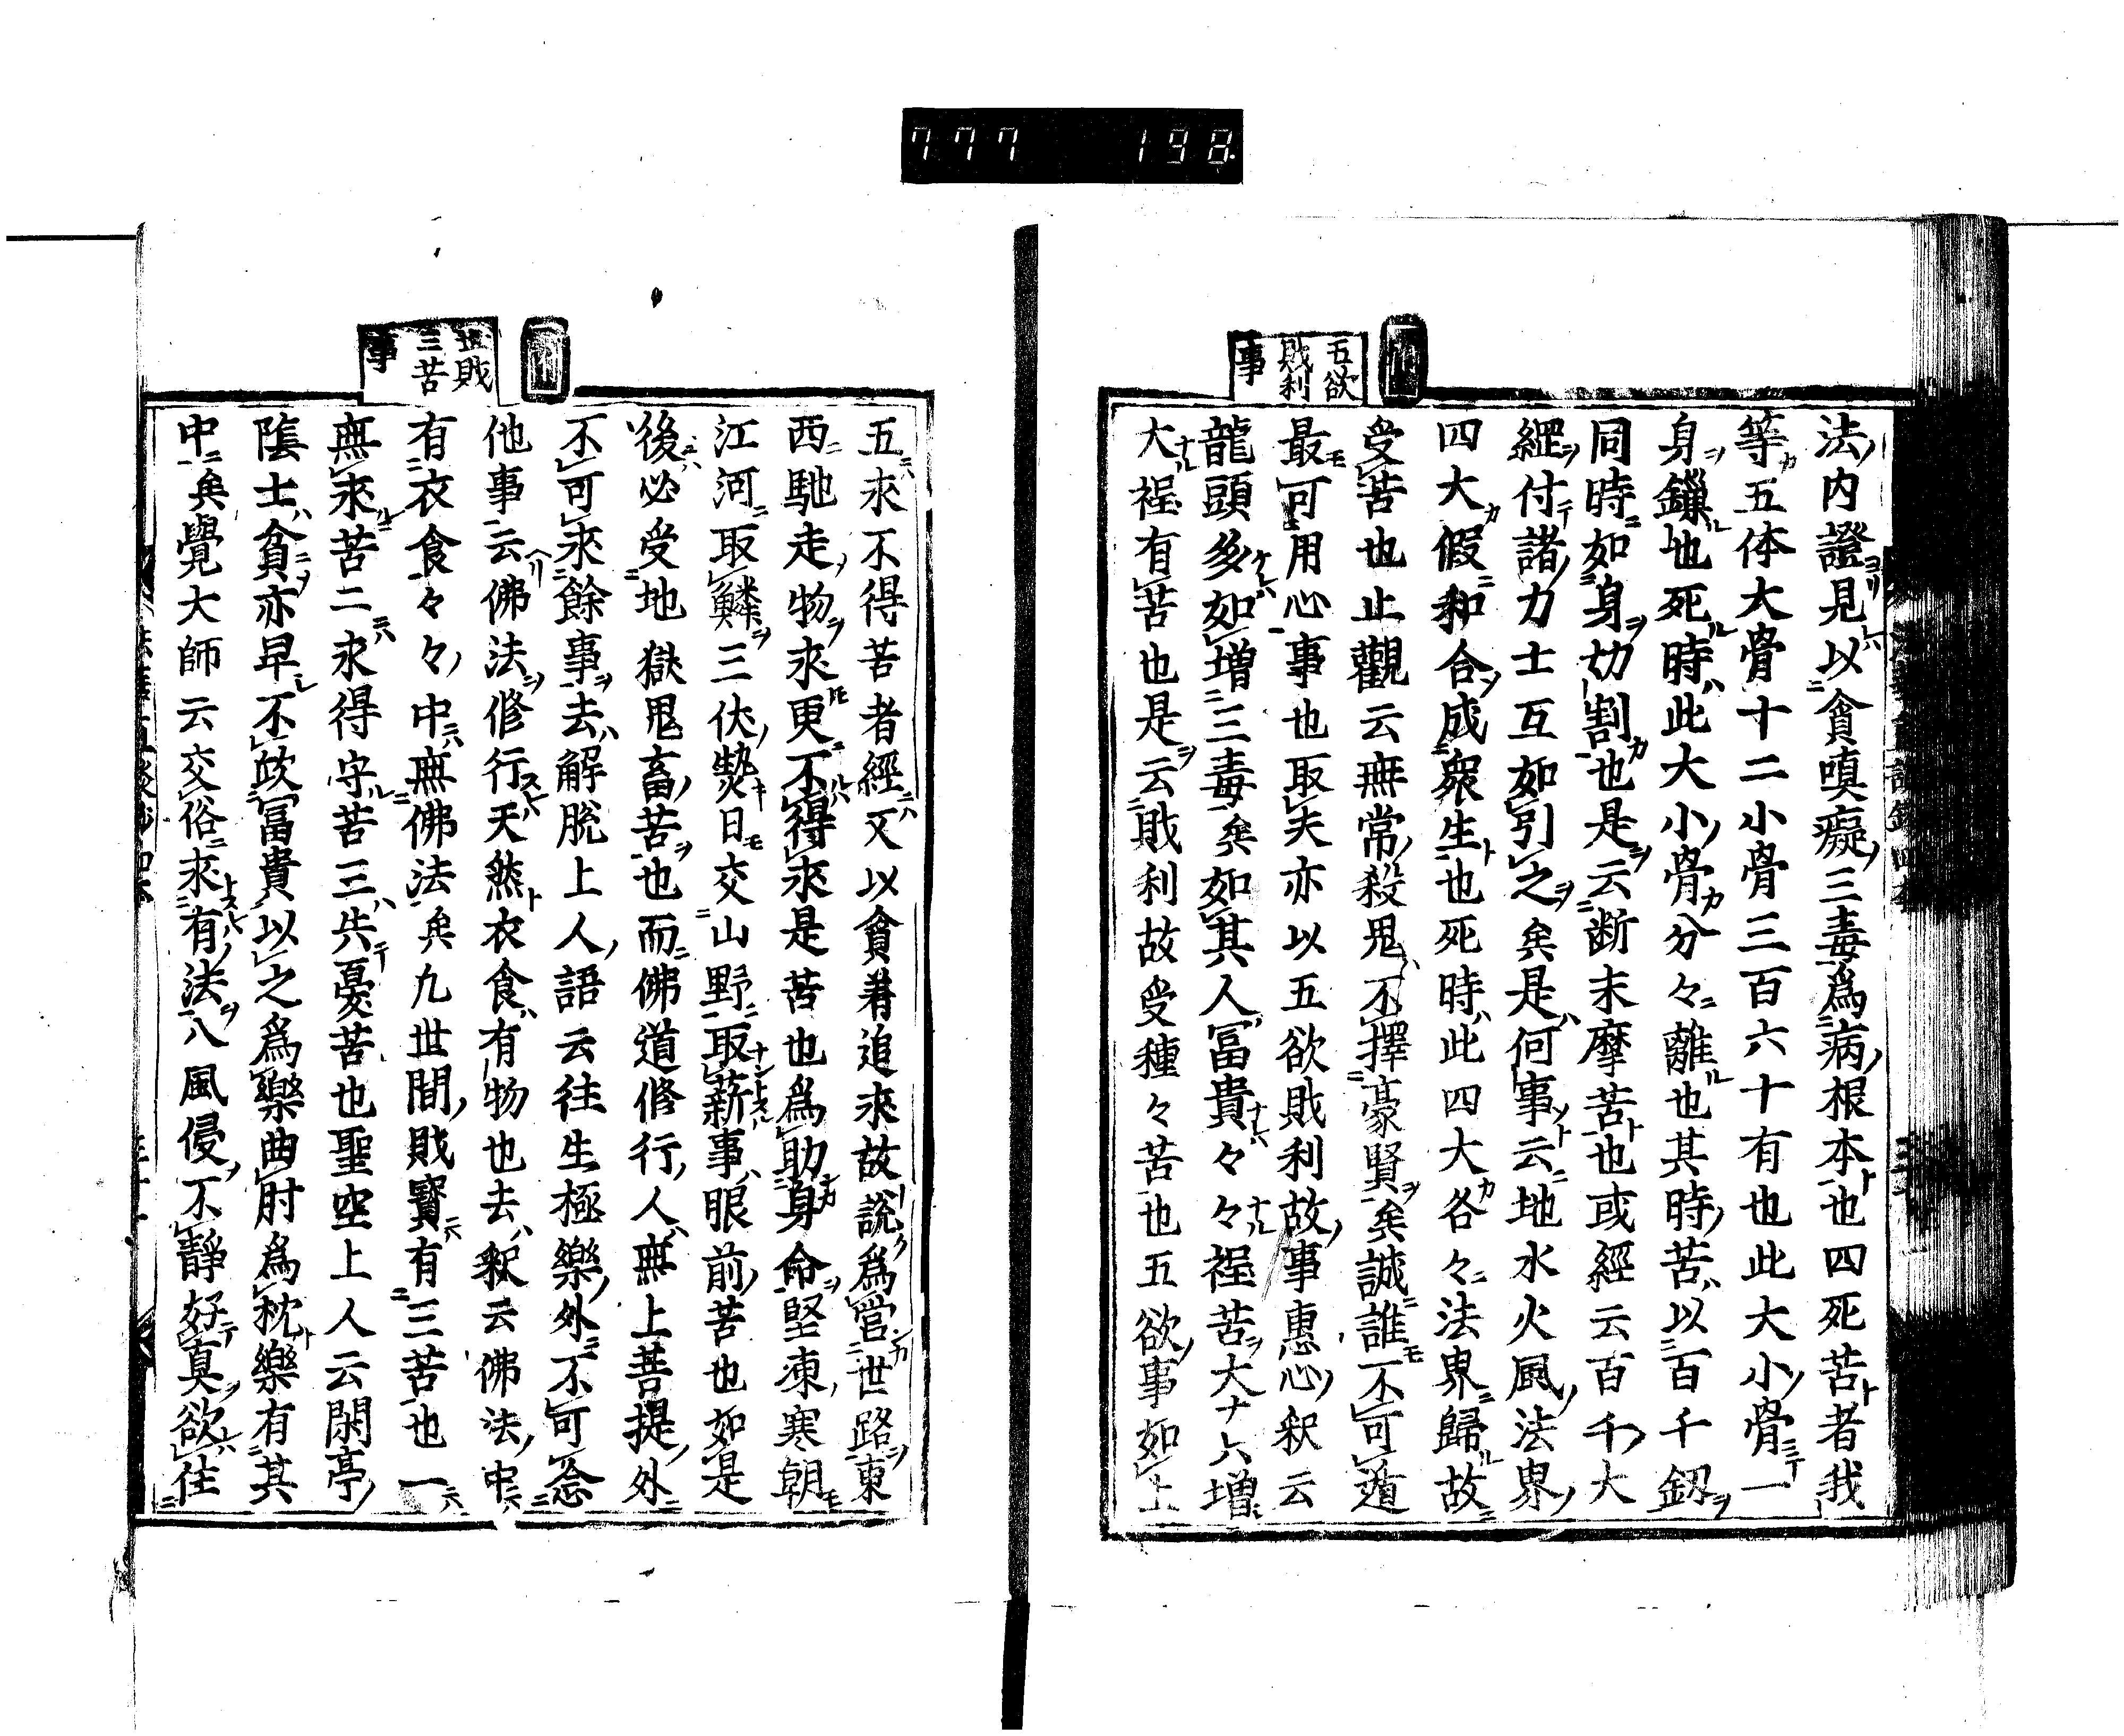 777 198
五欲
財利
事
法内證見以貪嗔癡三毒爲病根本也四死苦者我
等五体大骨十二小骨三百六十有也此大小骨一
身鏁也死時此大小骨分々離也其時苦以百千釼
同時如身切割也是云断末摩苦也或經云百千大
經付諸力士互如引之矣是何事云地水火風法界
四大假和合成衆生也死時此四大各々法界歸故
受苦也止觀云無常殺鬼不擇豪賢矣誠誰不可遁
最可用心事也取夫亦以五欲財利故事惠心釈云
龍頭多如増三毒矣如其人冨貴々々程苦大ナ六増
大程有苦也是云財利故受種々苦也五欲事如上
世財
三苦
事
五求不得苦者經又以貪着追求故説爲営世路東
西馳走物求更不得求是苦也爲助身命堅凍寒朝
江河取鱗三伏熱日交山野取薪事眼前苦也如是
後必受地獄鬼畜苦也而佛道修行人無上菩提外
不可求餘事去解脱上人語云往生極樂外不可念
他事云佛法修行天然衣食有物也去釈云佛法中
有衣食々々中無佛法矣九世間財寳有三苦也一
無求苦二求得守苦三失憂苦也聖空上人云閑亭
隂士貪亦早不欲冨貴以之爲樂曲肘爲枕樂有其
中矣覺大師云交俗求有法八風侵不靜好真欲住